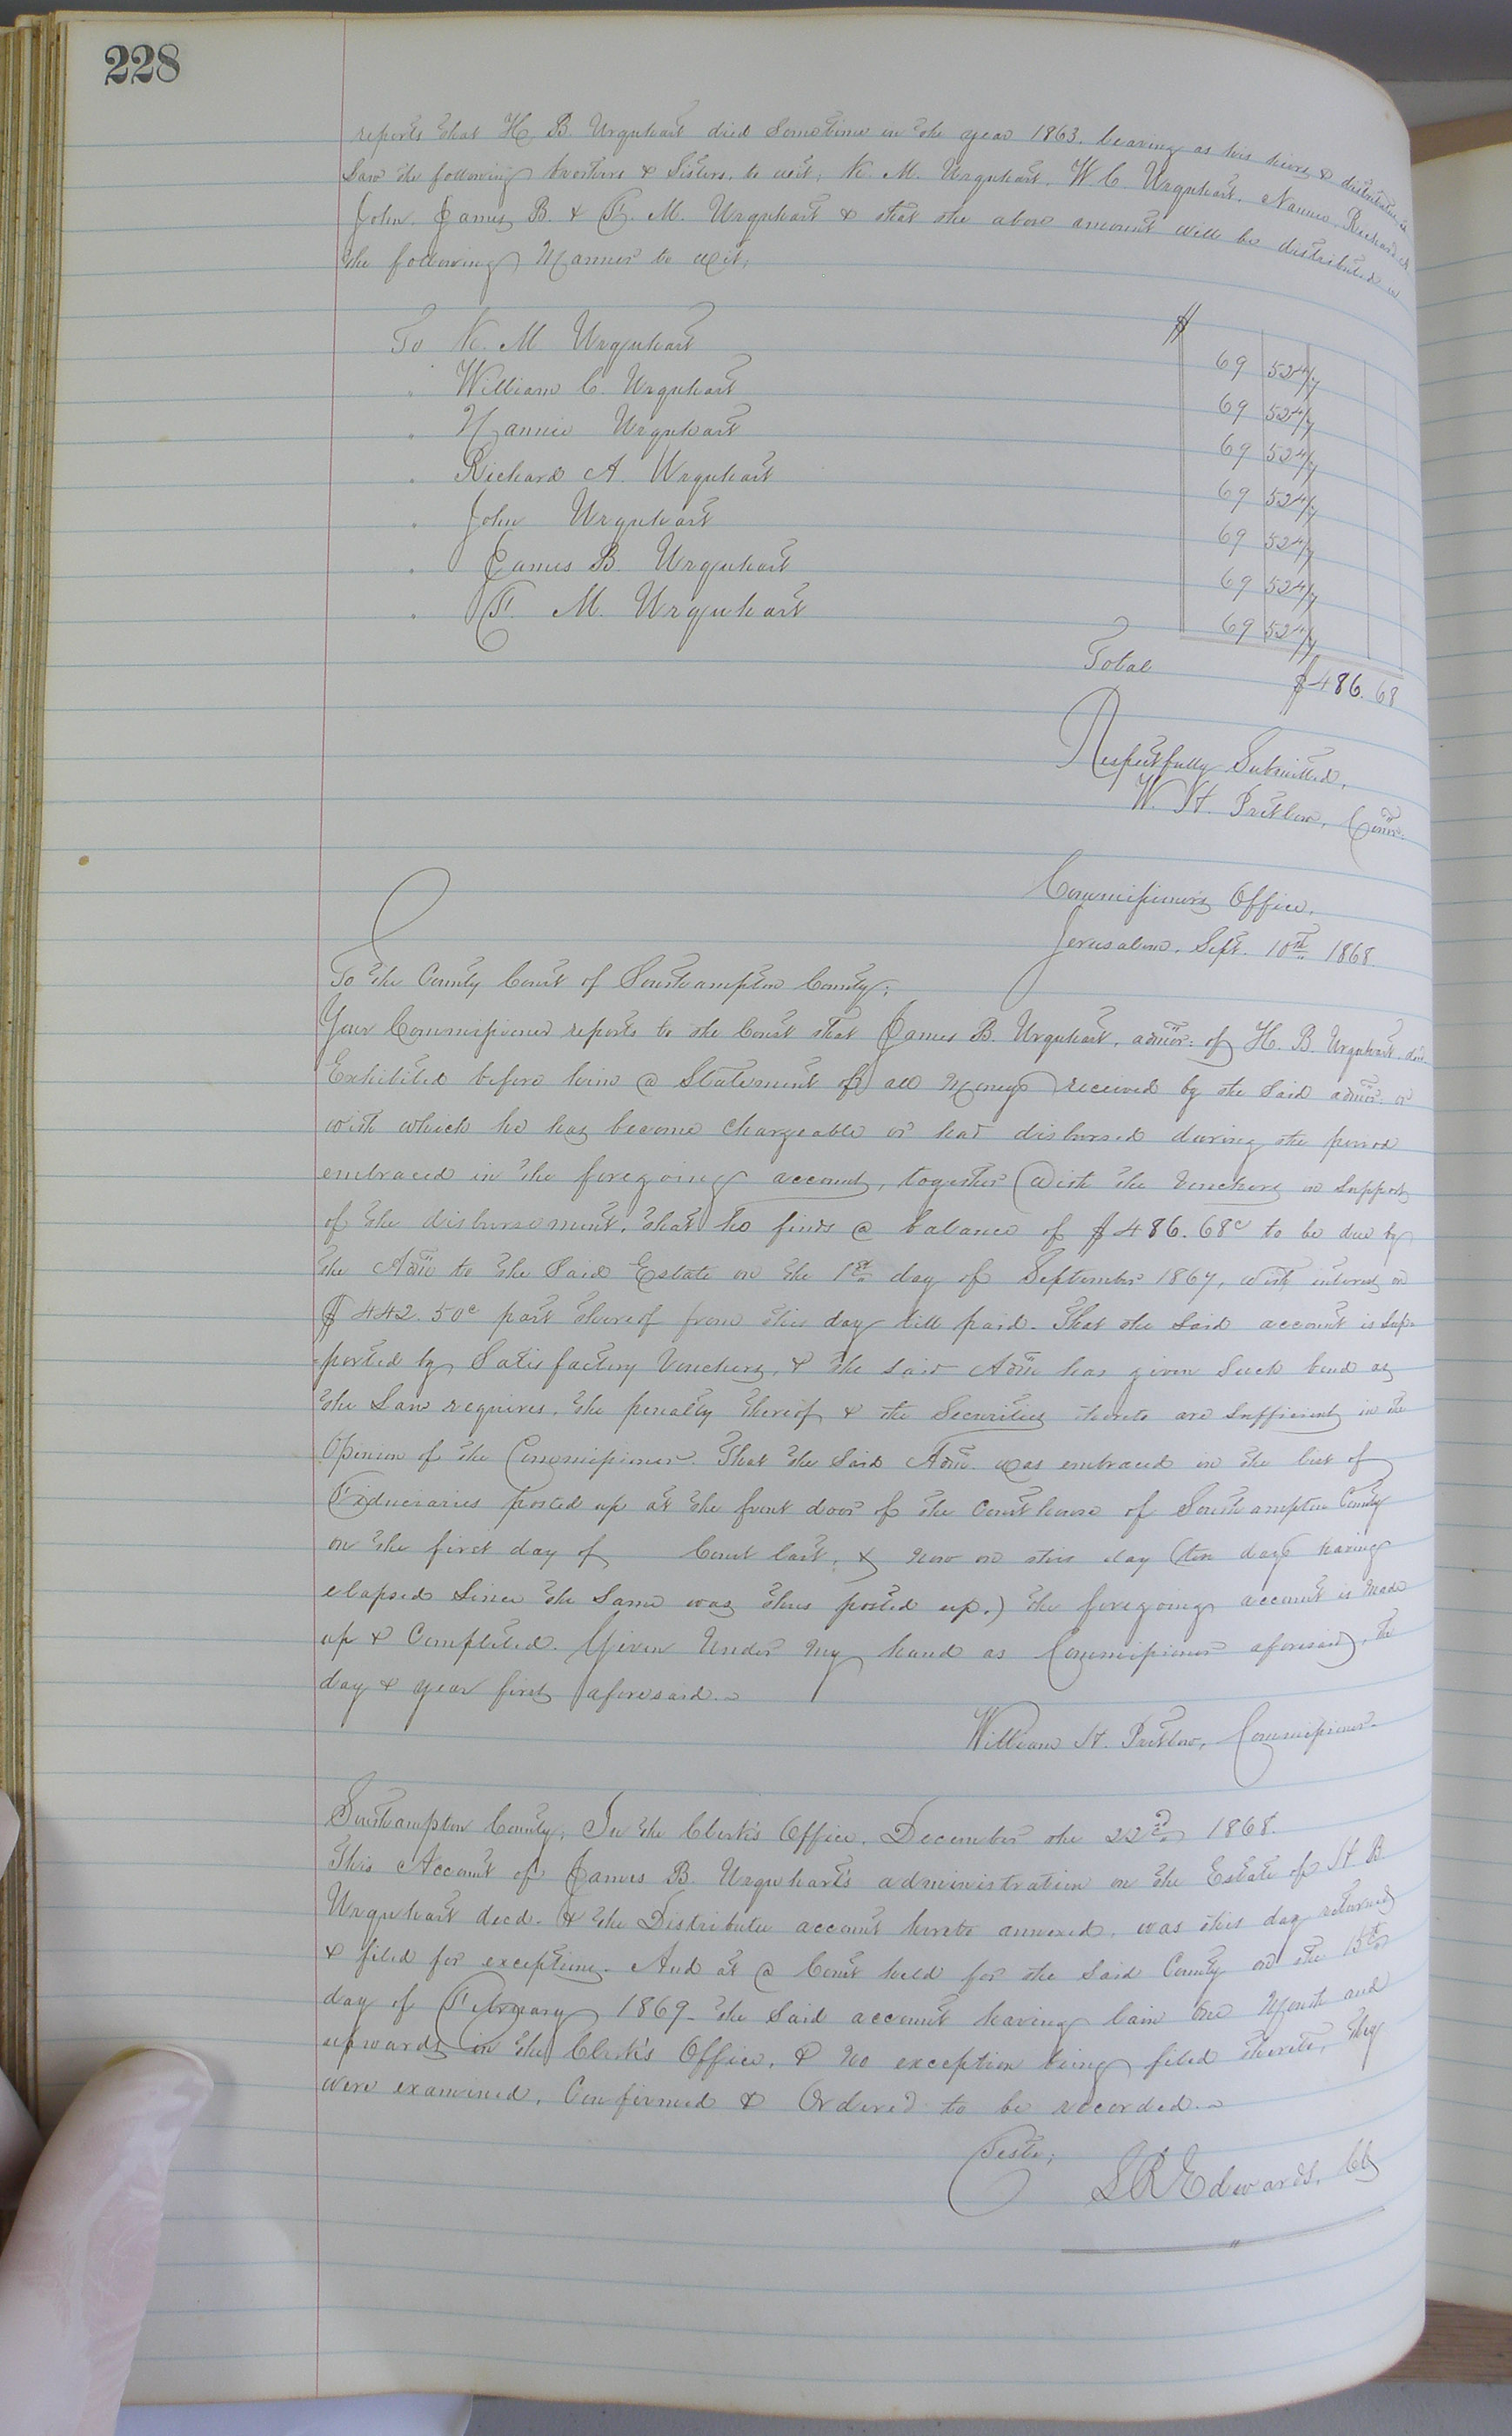 228
reports that H. B. Urquhart died Sometime in the year 1863. leaving as his heirs & distributees in
Law the following brothers & Sisters, to wit; N. M. Urquhart, W C. Urquhart, Nannie, Richard A.
John, James B. & F. M. Urquhart & that the above amount will be distributed in
the following Manner to wit;
$
To N. M Urquhart 69 52 4/7
" William C. Urquhart 69 52 4/7
" Nannie Urquhart 69 52 4/7
" Richard A. Urquhart 69 52 4/7
" John Urquhart 69 52 4/7
" James B. Urquhart 69 52 4/7
" F. M. Urquhart 69 52 4/7
Total $486.68
Respectfully Submitted,
W. H. Pretlow, Comr.
Commissioner's Office,
Jerusalem, Sept. 10th 1868.
To the County Court of Southampton County;
Your Commissioner reports to the Court that James B. Urquhart, admor: of H. B. Urquhart dec.
Exhibited before him a Statement of all Moneys received by the Said admor. or
with which he has become Chargeable or had disbursed during the period
embraced in the foregoing account, together with the Vouchers in Support
of the disbursement, that he finds a balance of $486.68c to be due by
the Admr to the Said Estate on the 1st day of September 1867, with interest on
$442.50c part thereof from this day till paid. That the Said account is Sup-
-ported by Satisfactory Vouchers, & the said Admr has given Such bond as
the Law requires, the penalty thereof & the Securities thereto are Sufficient in the
Opinion of the Commissioner. That the Said Admr. was embraced in the list of
Fiduciaries posted up at the front door of the Courthouse of Southampton County
on the first day of Court last, & now on this day (ten days having
elapsed Since the Same was thus posted up.) the foregoing account is Made
up & Completed. Given Under My hand as Commissioner aforesaid, the
day & year first aforesaid.~
William H. Pretlow, Commissioner.
Southampton County; In the Clerk's Office, December the 22nd 1868.
This Account of James B. Urquhart's administration on the Estate of H B
Urquhart decd. & the Distributee account hereto annexed, was this day returned
& filed for exceptions. And at a Court held for the Said County on the 15th
day of February 1869 - the Said account having lain One Month and
upwards in the Clerk's Office, & No exception being filed thereto, they
were examined, Confirmed & Ordered to be recorded.~
Teste;
L R Edwards, Clk